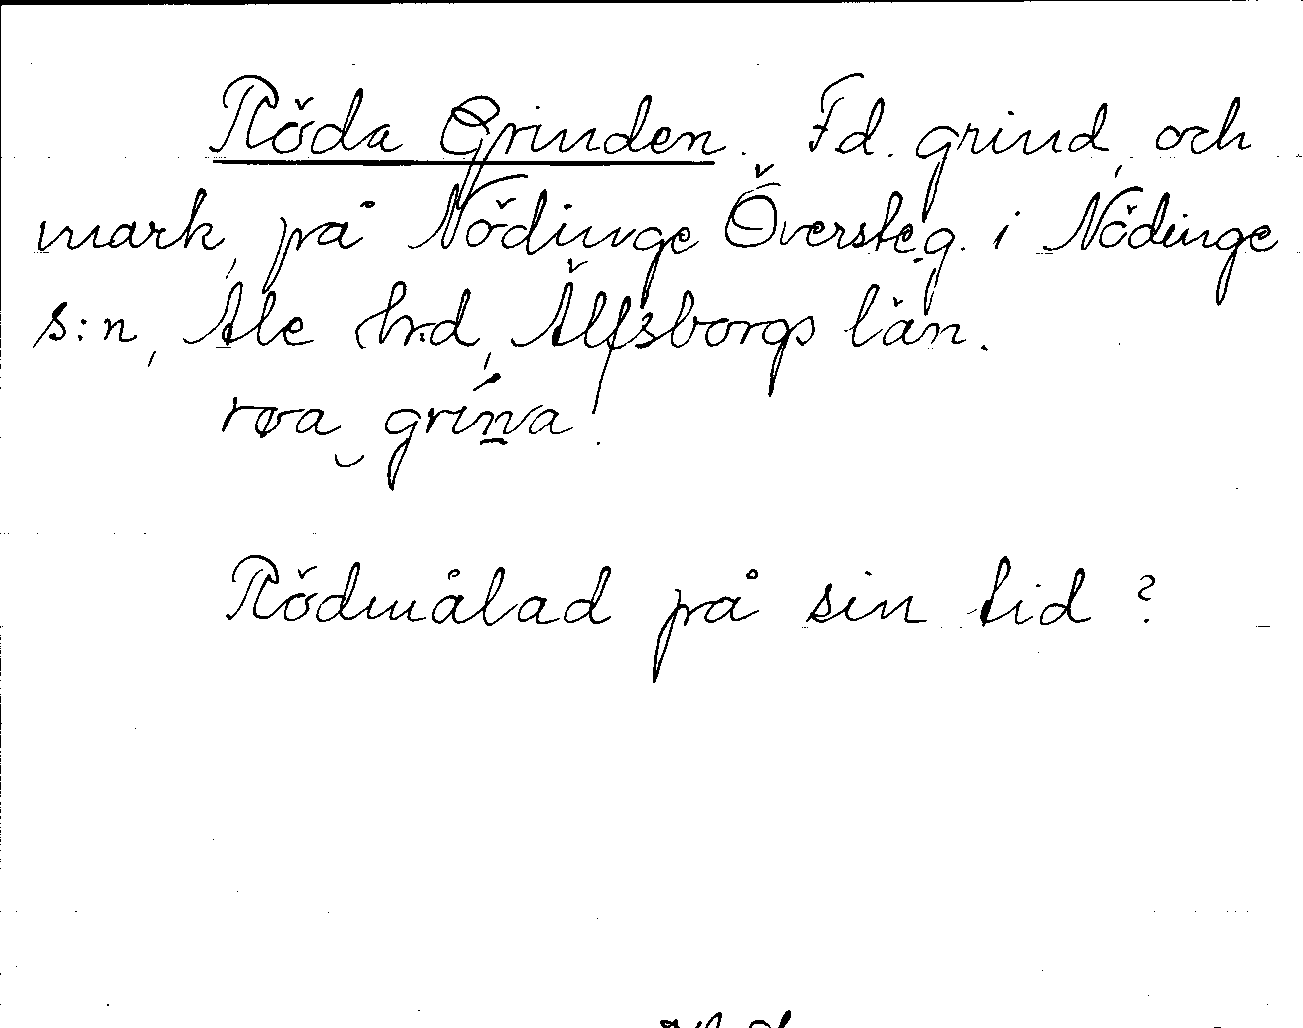 Röda Grinden. Fd. grind, och
mark, på Nödinge Översteg. i Nödinge
s:n, Ale hrd, Älfsborgs län.
røa grina.
Rödmålad på sin tid?